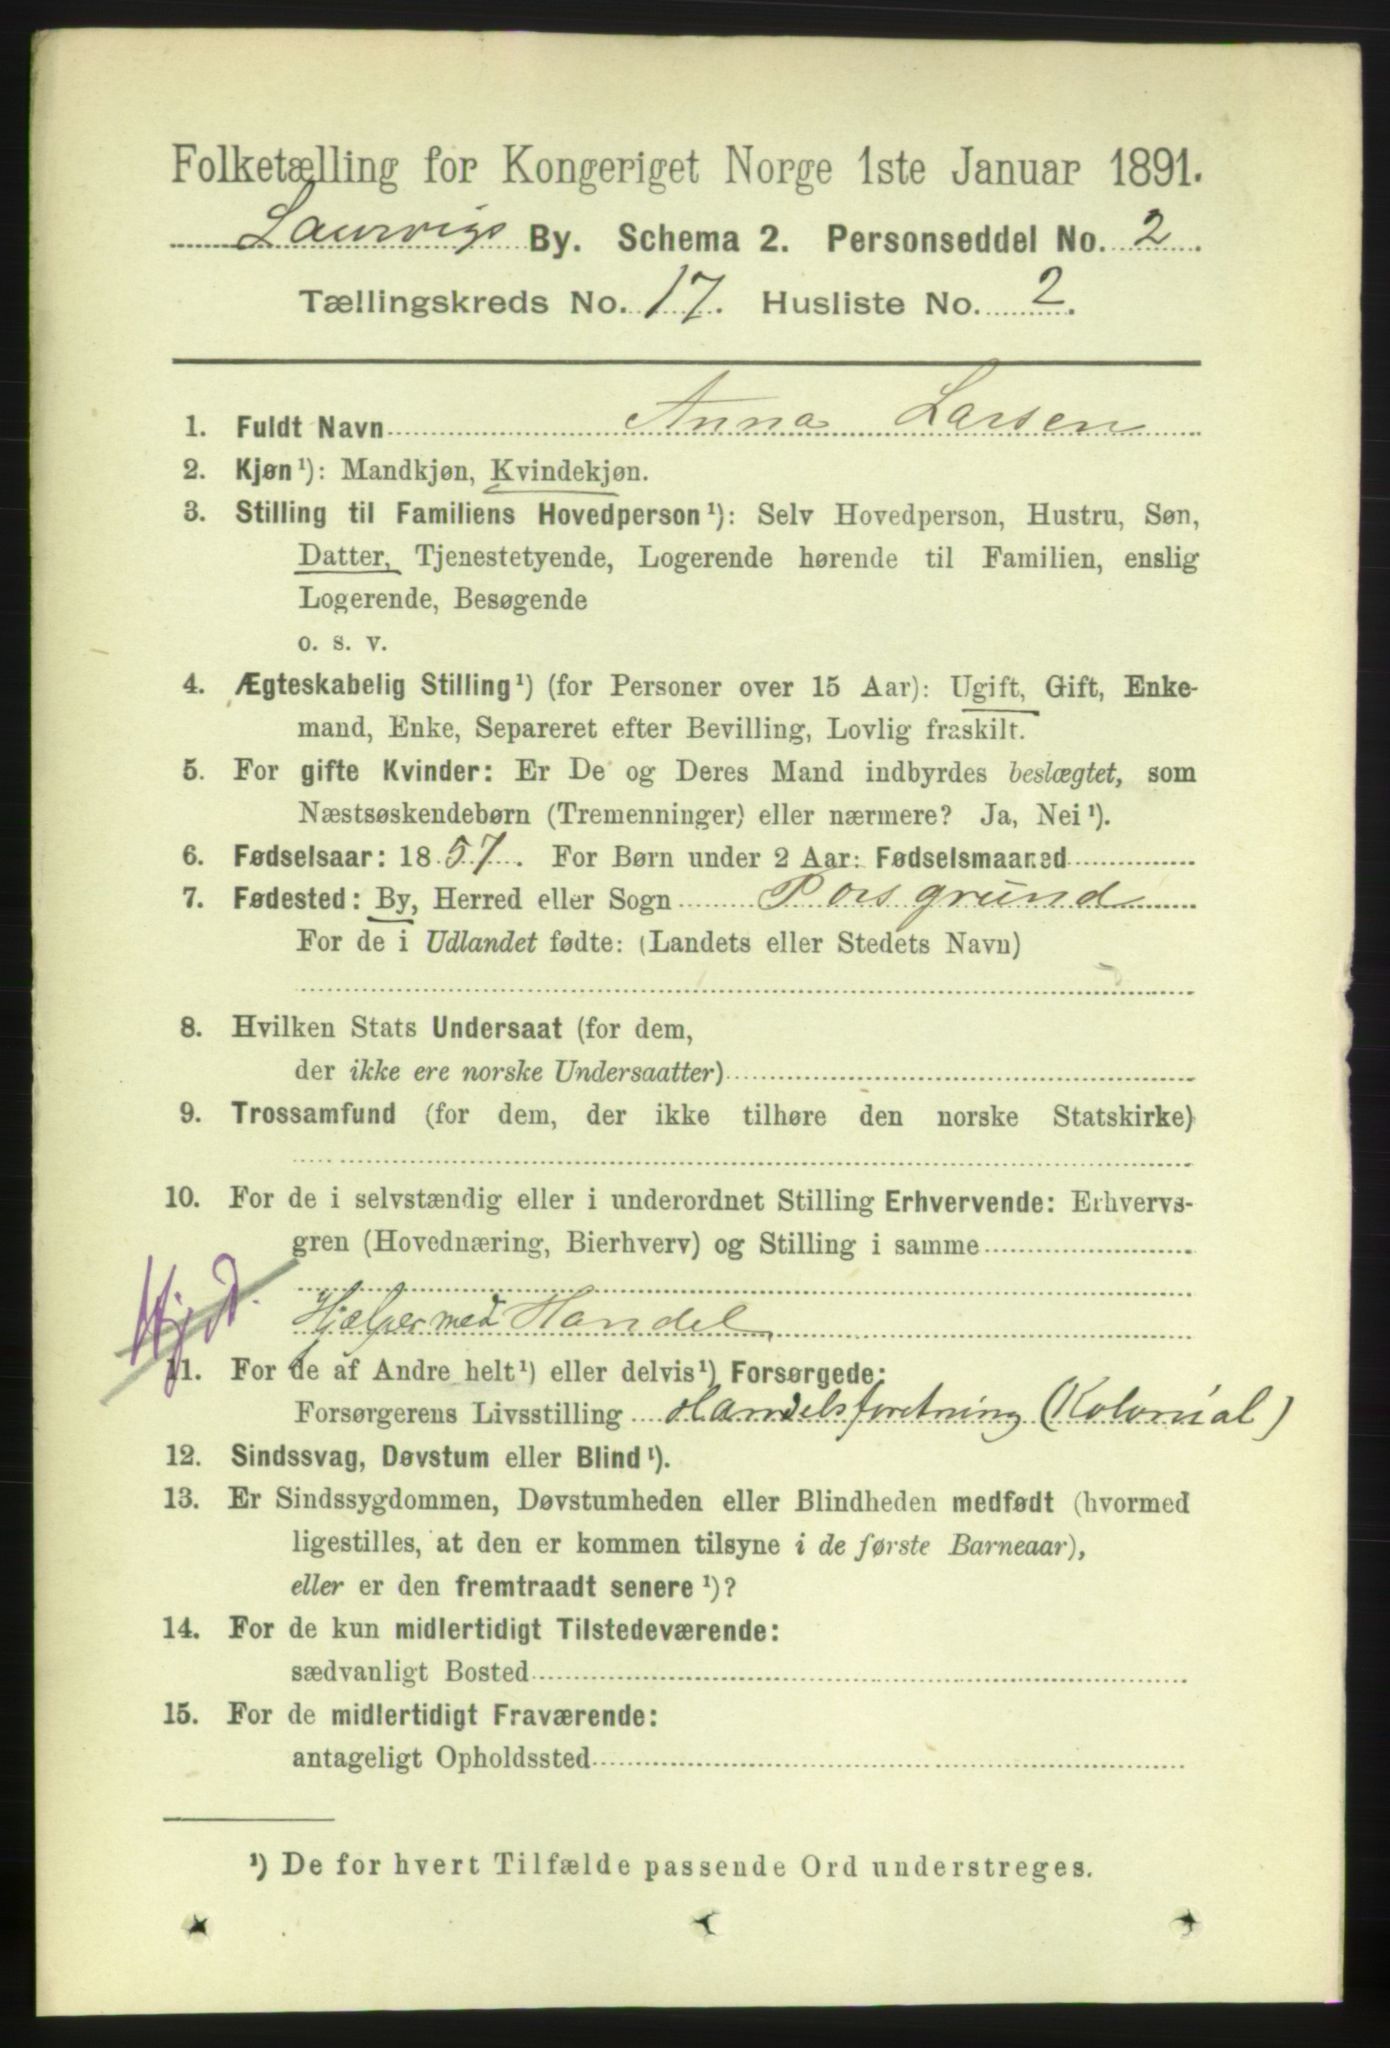 Folketælling for Kongeriget Norge 1ste Januar 1891.
Laurvigs By. Schema 2. Personseddel No. 2.
Tællingskreds No. 17. Husliste No. 2.
1. Fuldt Navn Anna Larsen
2. Kjøn¹): Mandkjøn, Kvindekjøn.
3. Stilling til Familiens Hovedperson¹): Selv Hovedperson, Hustru, Søn,
Datter, Tjenestetyende, Logerende hørende til Familien, enslig
Logerende, Besøgende
o. s. v.
4. Ægteskabelig Stilling¹) (for Personer over 15 Aar): Ugift, Gift, Enke-
mand, Enke, Separeret efter Bevilling, Lovlig fraskilt.
5. For gifte Kvinder: Er De og Deres Mand indbyrdes beslægtet, som
Næstsøskendebørn (Tremenninger) eller nærmere? Ja, Nei¹).
6. Fødselsaar: 1857. For Børn under 2 Aar: Fødselsmaaned
7. Fødested: By, Herred eller Sogn Porsgrund
For de i Udlandet fødte: (Landets eller Stedets Navn)
8. Hvilken Stats Undersaat (for dem,
der ikke ere norske Undersaatter)
9. Trossamfund (for dem, der ikke tilhøre den norske Statskirke)
10. For de i selvstændig eller i underordnet Stilling Erhvervende: Erhvervs-
gren (Hovednæring, Bierhverv) og Stilling i samme
Hjælper med Handel
11. For de af Andre helt¹) eller delvis¹) Forsørgede:
Forsørgerens Livsstilling Handelsforetning (Kolonial)
12. Sindssvag, Døvstum eller Blind¹).
13. Er Sindssygdommen, Døvstumheden eller Blindheden medfødt (hvormed
ligestilles, at den er kommen tilsyne i de første Barneaar),
eller er den fremtraadt senere¹)?
14. For de kun midlertidigt Tilstedeværende:
sædvanligt Bosted
15. For de midlertidigt Fraværende:
antageligt Opholdssted
¹) De for hvert Tilfælde passende Ord understreges.